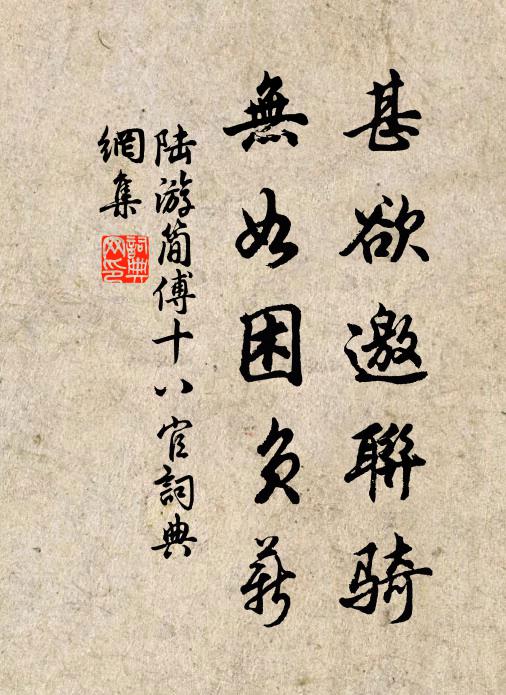 甚欲邀聯騎
無如困負薪
陸游简傅十八官詞典
網集
詞典
网印